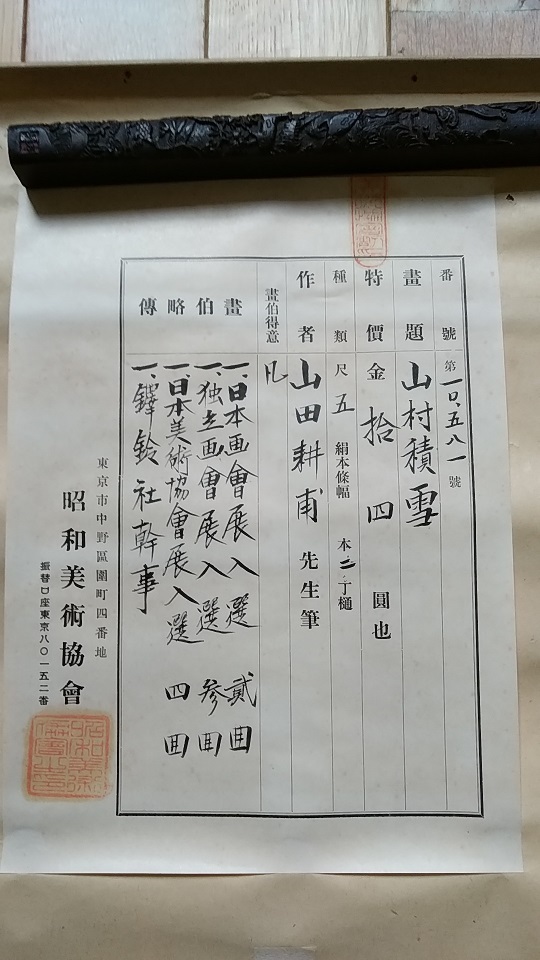 番號 第一〇、五八一號
畫題 山村積雪
特價 金拾四圓也
種類 尺五 絹本條幅 本 二丁樋
作者 山田耕甫先生筆
畫伯得意 凡
畫伯略傳
一、日本画會展入選 貳回
一、独立画會展入選 参回
一、日本美術協會展入選 四回
一、鐸鈴社幹事
東京市中野區圍町四番地
昭和美術協會
振替口座東京八〇一五二番